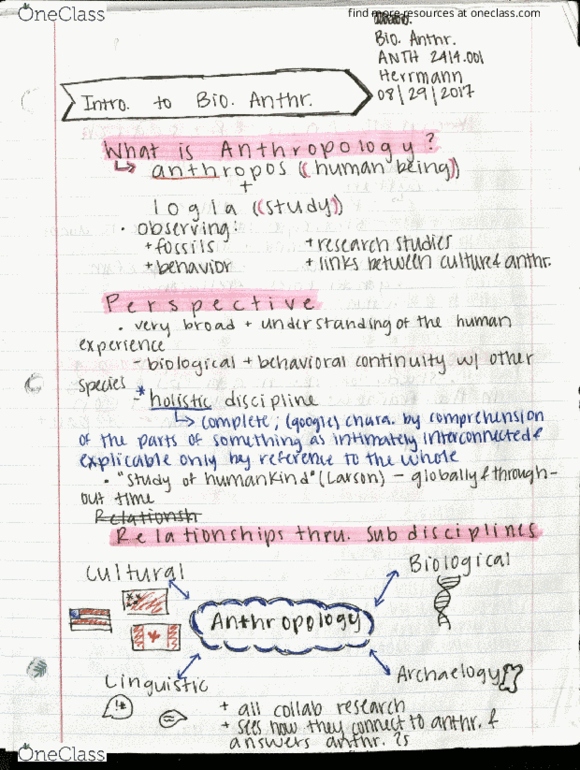 OneClass
find more resources at oneclass.com
Bio. Anthr.
ANTH 2414.001
Herrmann
08/29/2017
Intro. to Bio. Anthr.
What is Anthropology?
anthropos (human being)
+
logia (study)
• observing:
+ fossils + research studies
+ behavior + links between culture & anthr.
Perspective
• very broad + understanding of the human
experience
- biological + behavioral continuity w/ other
species
* - holistic discipline
complete; (google) chara. by comprehension
of the parts of something as intimately interconnected &
explicable only by reference to the whole
• "study of humankind" (Larson) - globally & through-
out time
Relationsh
Relationships thru. subdisciplines
Cultural
Biological
Anthropology
Linguistic
Archaelogy
!*
+ all collab research
+ sees how they connect to anthr. &
answers anthr. ?s
OneClass